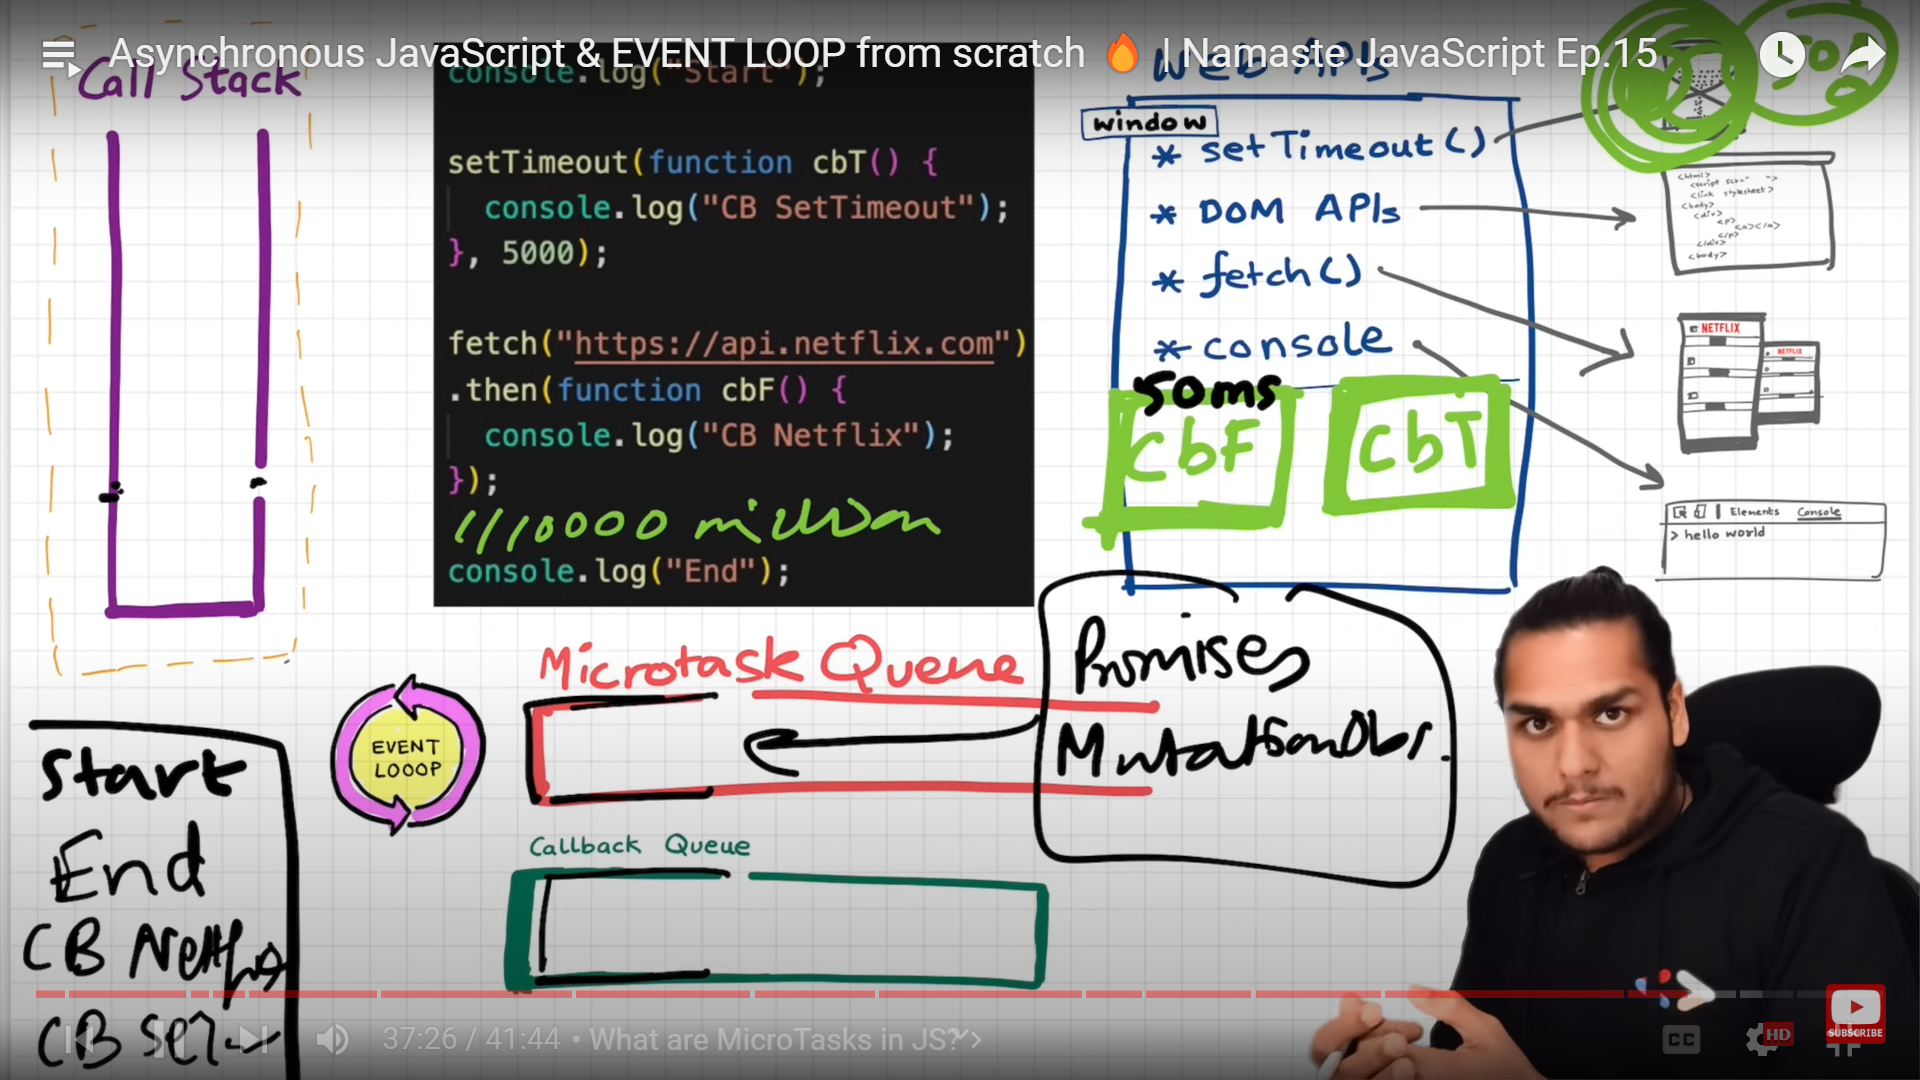 Asynchronous JavaScript & EVENT LOOP from scratch 🔥 | Namaste JavaScript Ep.15
Call Stack
console.log("Start");
setTimeout(function cbT() {
console.log("CB SetTimeout");
}, 5000);
fetch("https://api.netflix.com")
.then(function cbF() {
console.log("CB Netflix");
});
// 10000 million
console.log("End");
WEB APIs
window
* setTimeout()
* DOM APIs
* fetch()
* console
50ms
CbF
CbT
<html>
<link stylesheet>
<body>
<div>
<p>
<a></a>
</p>
</div>
<body>
NETFLIX
NETFLIX
Elements Console
> hello world
Microtask Queue
Promises
EVENT
LOOOP
Callback Queue
Start
End
CB Netflix
37:26 / 41:44 • What are MicroTasks in JS? >
CC
HD
SUBSCRIBE